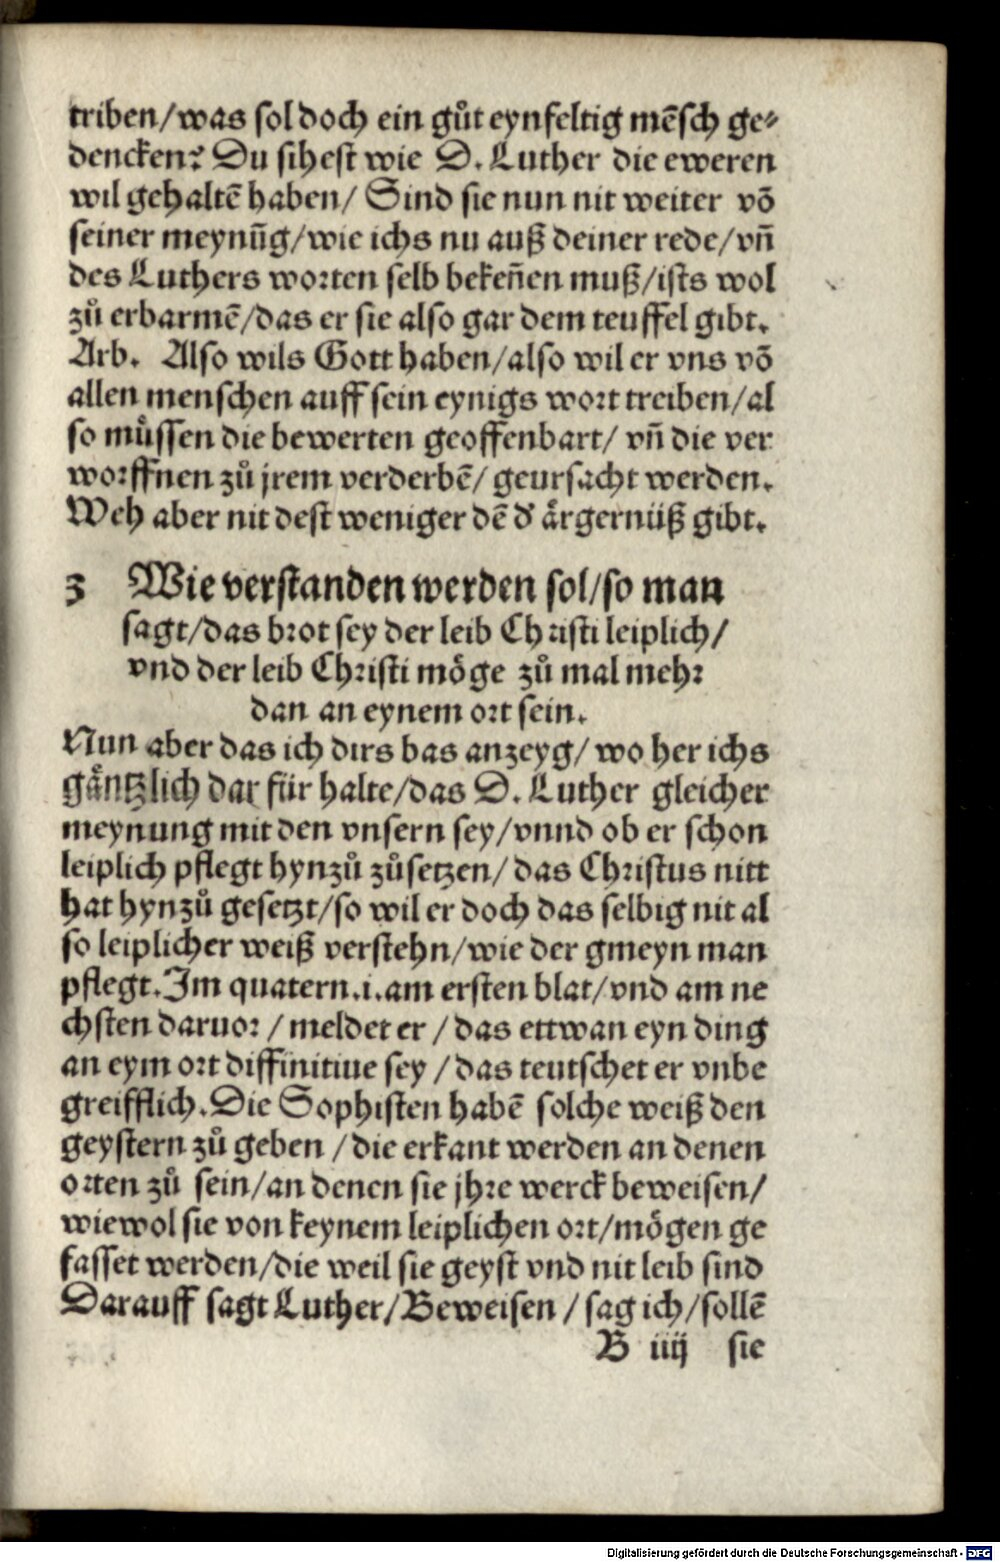 triben/was sol doch ein gůt eynfeltig mẽsch ge⸗
dencken? Du sihest wie D. Luther die eweren
wil gehaltẽ haben/ Sind sie nun nit weiter võ
seiner meynũg/wie ichs nu auß deiner rede/vñ
des Luthers worten selb bekeñen muß/ists wol
zů erbarmẽ/das er sie also gar dem teuffel gibt.
Arb. Also wils Gott haben/also wil er vns võ
allen menschen auff sein eynigs wort treiben/al
so můssen die bewerten geoffenbart/ vñ die ver
worffnen zů jrem verderbẽ/ geursacht werden.
Weh aber nit dest weniger dẽ d' årgernüß gibt.
3 Wie verstanden werden sol/so man
sagt/das brot sey der leib Christi leiplich/
vnd der leib Christi möge zů mal mehr
dan an eynem ort sein.
Nun aber das ich dirs bas anzeyg/ wo her ichs
gåntzlich dar für halte/das D. Luther gleicher
meynung mit den vnsern sey/vnnd ob er schon
leiplich pflegt hynzů zůsetzen/ das Christus nitt
hat hynzů gesetzt/so wil er doch das selbig nit al
so leiplicher weiß verstehn/wie der gmeyn man
pflegt. Im quatern.i.am ersten blat/vnd am ne
chsten daruor / meldet er / das ettwan eyn ding
an eym ort diffinitiue sey / das teutschet er vnbe
greifflich. Die Sophisten habẽ solche weiß den
geystern zů geben / die erkant werden an denen
orten zů sein/an denen sie jhre werck beweisen/
wiewol sie von keynem leiplichen ort/mögen ge
fasset werden/die weil sie geyst vnd nit leib sind
Darauff sagt Luther/Beweisen / sag ich/sollẽ
B iiij sie
Digitalisierung gefördert durch die Deutsche Forschungsgemeinschaft - DFG